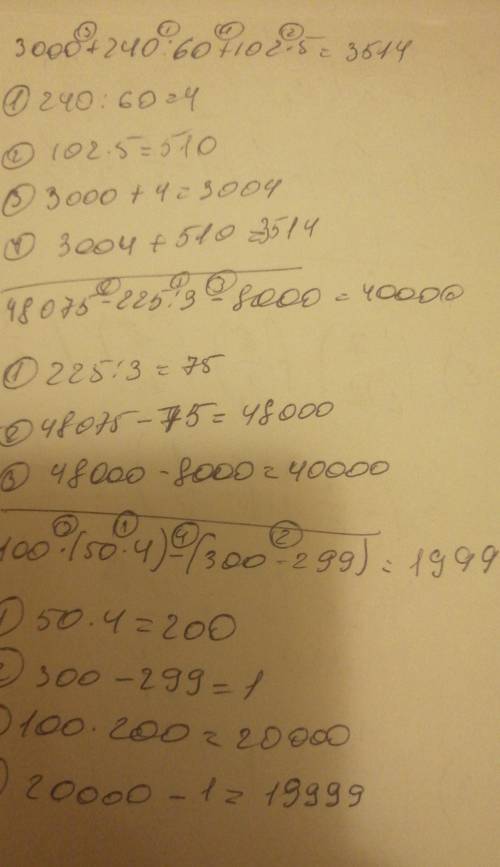 3000 + 240 : 60 + 102 · 5 = 3514
① 240 : 60 = 4
② 102 · 5 = 510
③ 3000 + 4 = 3004
④ 3004 + 510 = 3514
48075 - 225 : 3 - 8000 = 40000
① 225 : 3 = 75
② 48075 - 75 = 48000
③ 48000 - 8000 = 40000
100 · (50 · 4) - (300 - 299) = 1999
① 50 · 4 = 200
② 300 - 299 = 1
100 · 200 = 20000
20000 - 1 = 19999